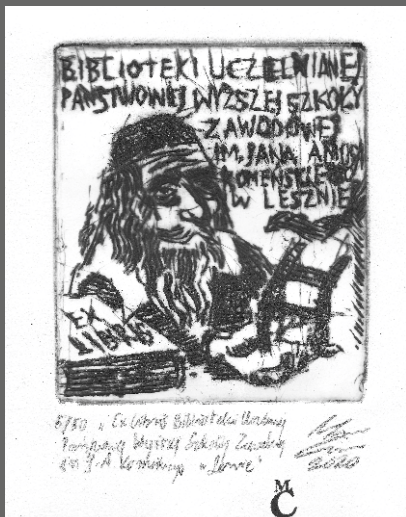 BIBLIOTEKI UCZELNIANEJ
PAŃSTWOWEJ WYŻSZEJ SZKOŁY
ZAWODOWEJ
IM. JANA AMOSA
KOMEŃSKIEGO
W LESZNIE
EX
LIBRIS
Ex Libris Biblioteki
Państwowej Wyższej Szkoły
im J. A. Komeńskiego w
2020
M
C